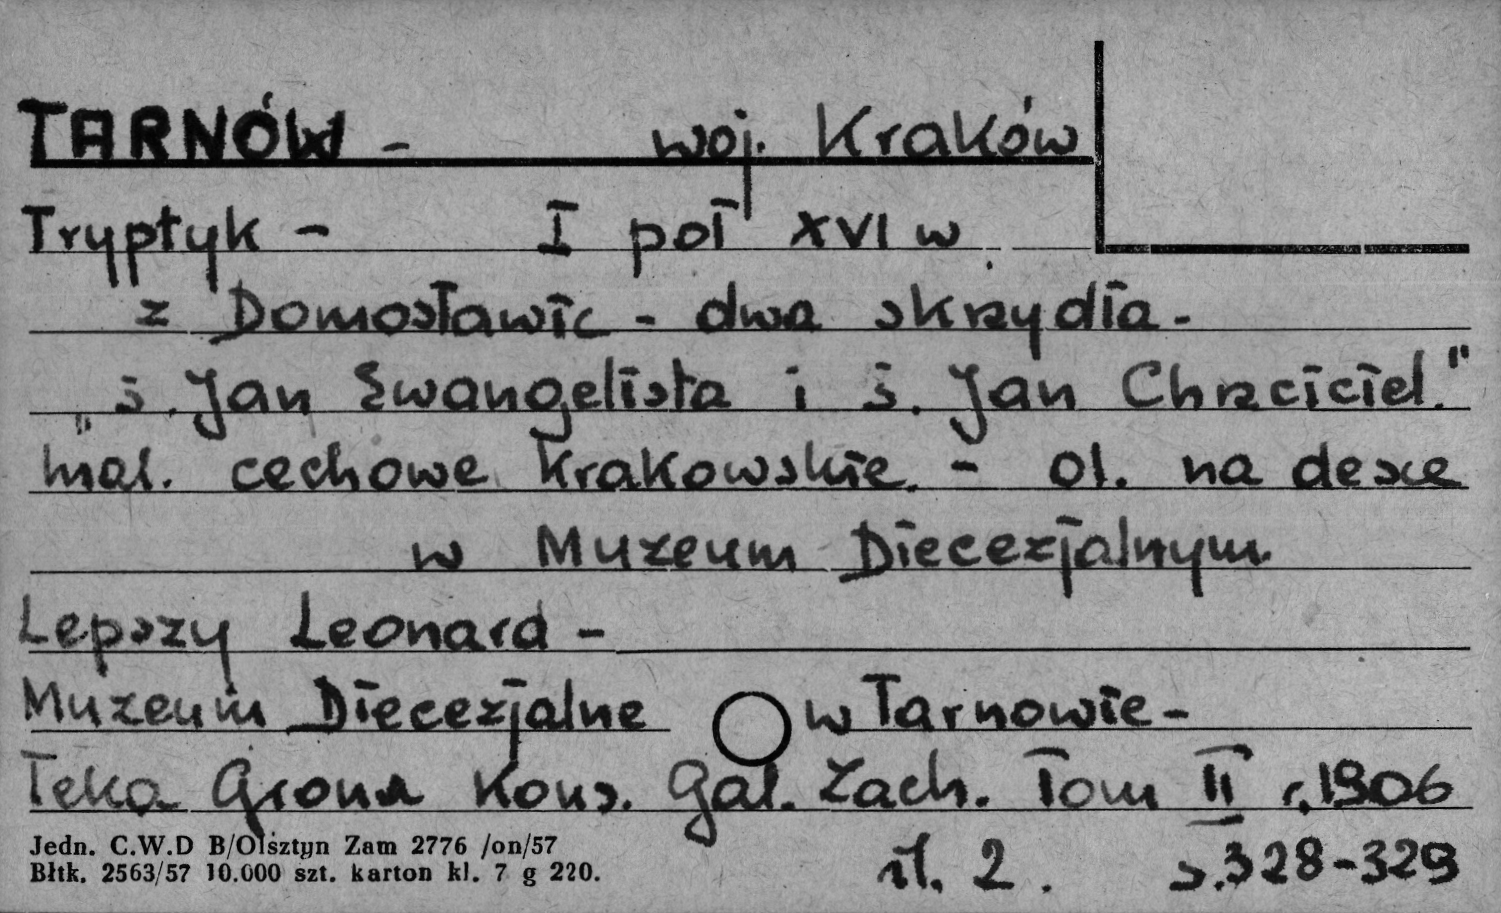 TARNÓW - woj. Kraków
Tryptyk - I poł XVI w.
z Domosławic - dwa skrzydła -
„ś. Jan Ewangelista i ś. Jan Chrzciciel."
mal. cechowe krakowskie. - ol. na desce
w Muzeum Diecezjalnym
Lepszy Leonard -
Muzeum Diecezjalne w Tarnowie -
Teka Grona Kons. Gal. Zach. Tom II r. 1906
il. 2. s. 328-329
Jedn. C.W.D B/Olsztyn Zam 2776 /on/57
Błtk. 2563/57 10.000 szt. karton kl. 7 g 220.